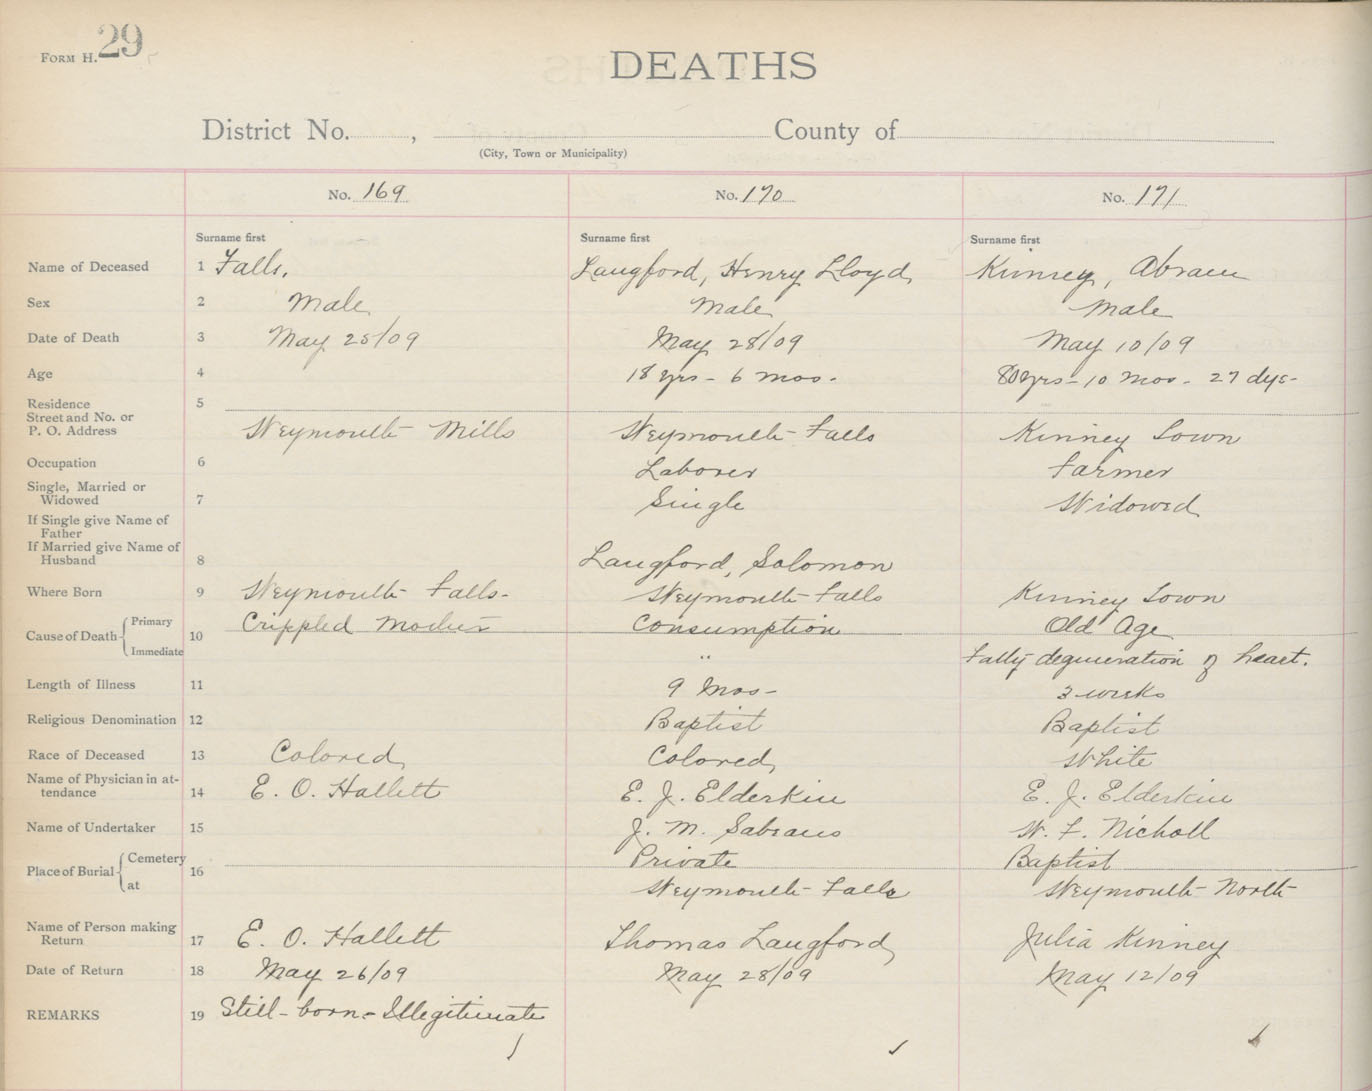 FORM H. 29
DEATHS
District No. , County of
(City, Town or Municipality)
No. 169 No. 170 No. 171
Surname first Surname first Surname first
Name of Deceased 1 Falls, Langford, Henry Lloyd Kinney, Abram
Sex 2 Male Male Male
Date of Death 3 May 25/09 May 28/09 May 10/09
Age 4 18 yrs - 6 mos. 80 yrs - 10 mos. 27 dys-
Residence 5
Street and No. or
P. O. Address Weymouth Mills Weymouth Falls Kinney Town
Occupation 6 Laborer Farmer
Single, Married or
Widowed 7 Single Widowed
If Single give Name of
Father
If Married give Name of
Husband 8 Langford, Solomon
Where Born 9 Weymouth Falls- Weymouth Falls Kinney Town
Cause of Death { Primary 10 Crippled Mother Consumption Old Age
Immediate " Fatty degeneration of heart.
Length of Illness 11 9 Mos- 3 weeks
Religious Denomination 12 Baptist Baptist
Race of Deceased 13 Colored Colored White
Name of Physician in at-
tendance 14 E. O. Hallett E. J. Elderkin E. J. Elderkin
Name of Undertaker 15 J. M. Sabeans W. F. Nicholl
Place of Burial { Cemetery 16 Private Baptist
at Weymouth Falls Weymouth North
Name of Person making
Return 17 E. O. Hallett Thomas Langford Julia Kinney
Date of Return 18 May 26/09 May 28/09 May 12/09
REMARKS 19 Still-born - Illegitimate